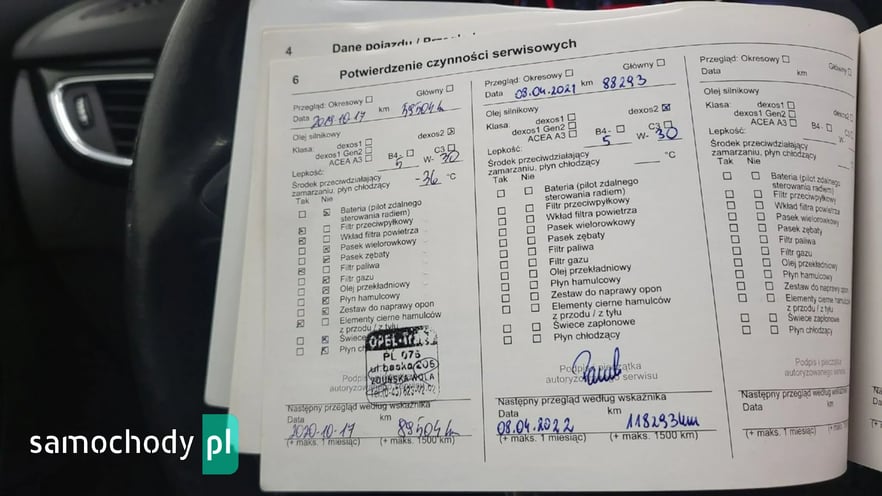 4 Dane pojazdu /
6 Potwierdzenie czynności serwisowych
Przegląd: Okresowy □ Główny □
Data 2019-10-17 km 59504 k
Olej silnikowy
Klasa: dexos1 □ dexos2 ☒
dexos1 Gen2 □ C3 □
ACEA A3 □ B4- □
Lepkość: 5 W- 30
Środek przeciwdziałający
zamarzaniu, płyn chłodzący -36 °C
Tak Nie
Bateria (pilot zdalnego
sterowania radiem)
Filtr przeciwpyłkowy
Wkład filtra powietrza
Pasek wielorowkowy
Pasek zębaty
Filtr paliwa
Filtr gazu
Olej przekładniowy
Płyn hamulcowy
Zestaw do naprawy opon
Elementy cierne hamulców
z przodu / z tyłu
Świece
Płyn
OPEL
PL 076
ul. Łaska 206
ZDUŃSKA WOLA
Następny przegląd według wskaźnika
Data km
2020-10-17 89504 k
(+ maks. 1 miesiąc) (+ maks. 1500 km)
Przegląd: Okresowy □ Główny □
Data 08.04.2021 km 88293
Olej silnikowy
Klasa: dexos1 □ dexos2 ☒
dexos1 Gen2 □ C3 □
ACEA A3 □ B4- □
Lepkość: 5 W- 30
Środek przeciwdziałający
zamarzaniu, płyn chłodzący °C
Tak Nie
Bateria (pilot zdalnego
sterowania radiem)
Filtr przeciwpyłkowy
Wkład filtra powietrza
Pasek wielorowkowy
Pasek zębaty
Filtr paliwa
Filtr gazu
Olej przekładniowy
Płyn hamulcowy
Zestaw do naprawy opon
Elementy cierne hamulców
z przodu / z tyłu
Świece zapłonowe
Płyn chłodzący
Podpis i pieczątka
autoryzowanego serwisu
Następny przegląd według wskaźnika
Data km
08.04.2022 118293km
(+ maks. 1 miesiąc) (+ maks. 1500 km)
Przegląd: Okresowy □ Główny □
Data km
Olej silnikowy
Klasa: dexos1 □ dexos2 □
dexos1 Gen2 □
ACEA A3 □ B4-
Lepkość: W-
Środek przeciwdziałający
zamarzaniu, płyn chłodzący
Tak Nie
Bateria (pilot zdalnego
sterowania radiem)
Filtr przeciwpyłkowy
Wkład filtra powietrza
Pasek wielorowkowy
Pasek zębaty
Filtr paliwa
Filtr gazu
Olej przekładniowy
Płyn hamulcowy
Zestaw do naprawy opon
Elementy cierne hamulców
z przodu / z tyłu
Świece zapłonowe
Płyn chłodzący
Podpis i pieczątka
autoryzowanego serwisu
Następny przegląd według wskaźnika
Data km
(+ maks. 1 miesiąc) (+ maks. 1500 km)
samochody pl